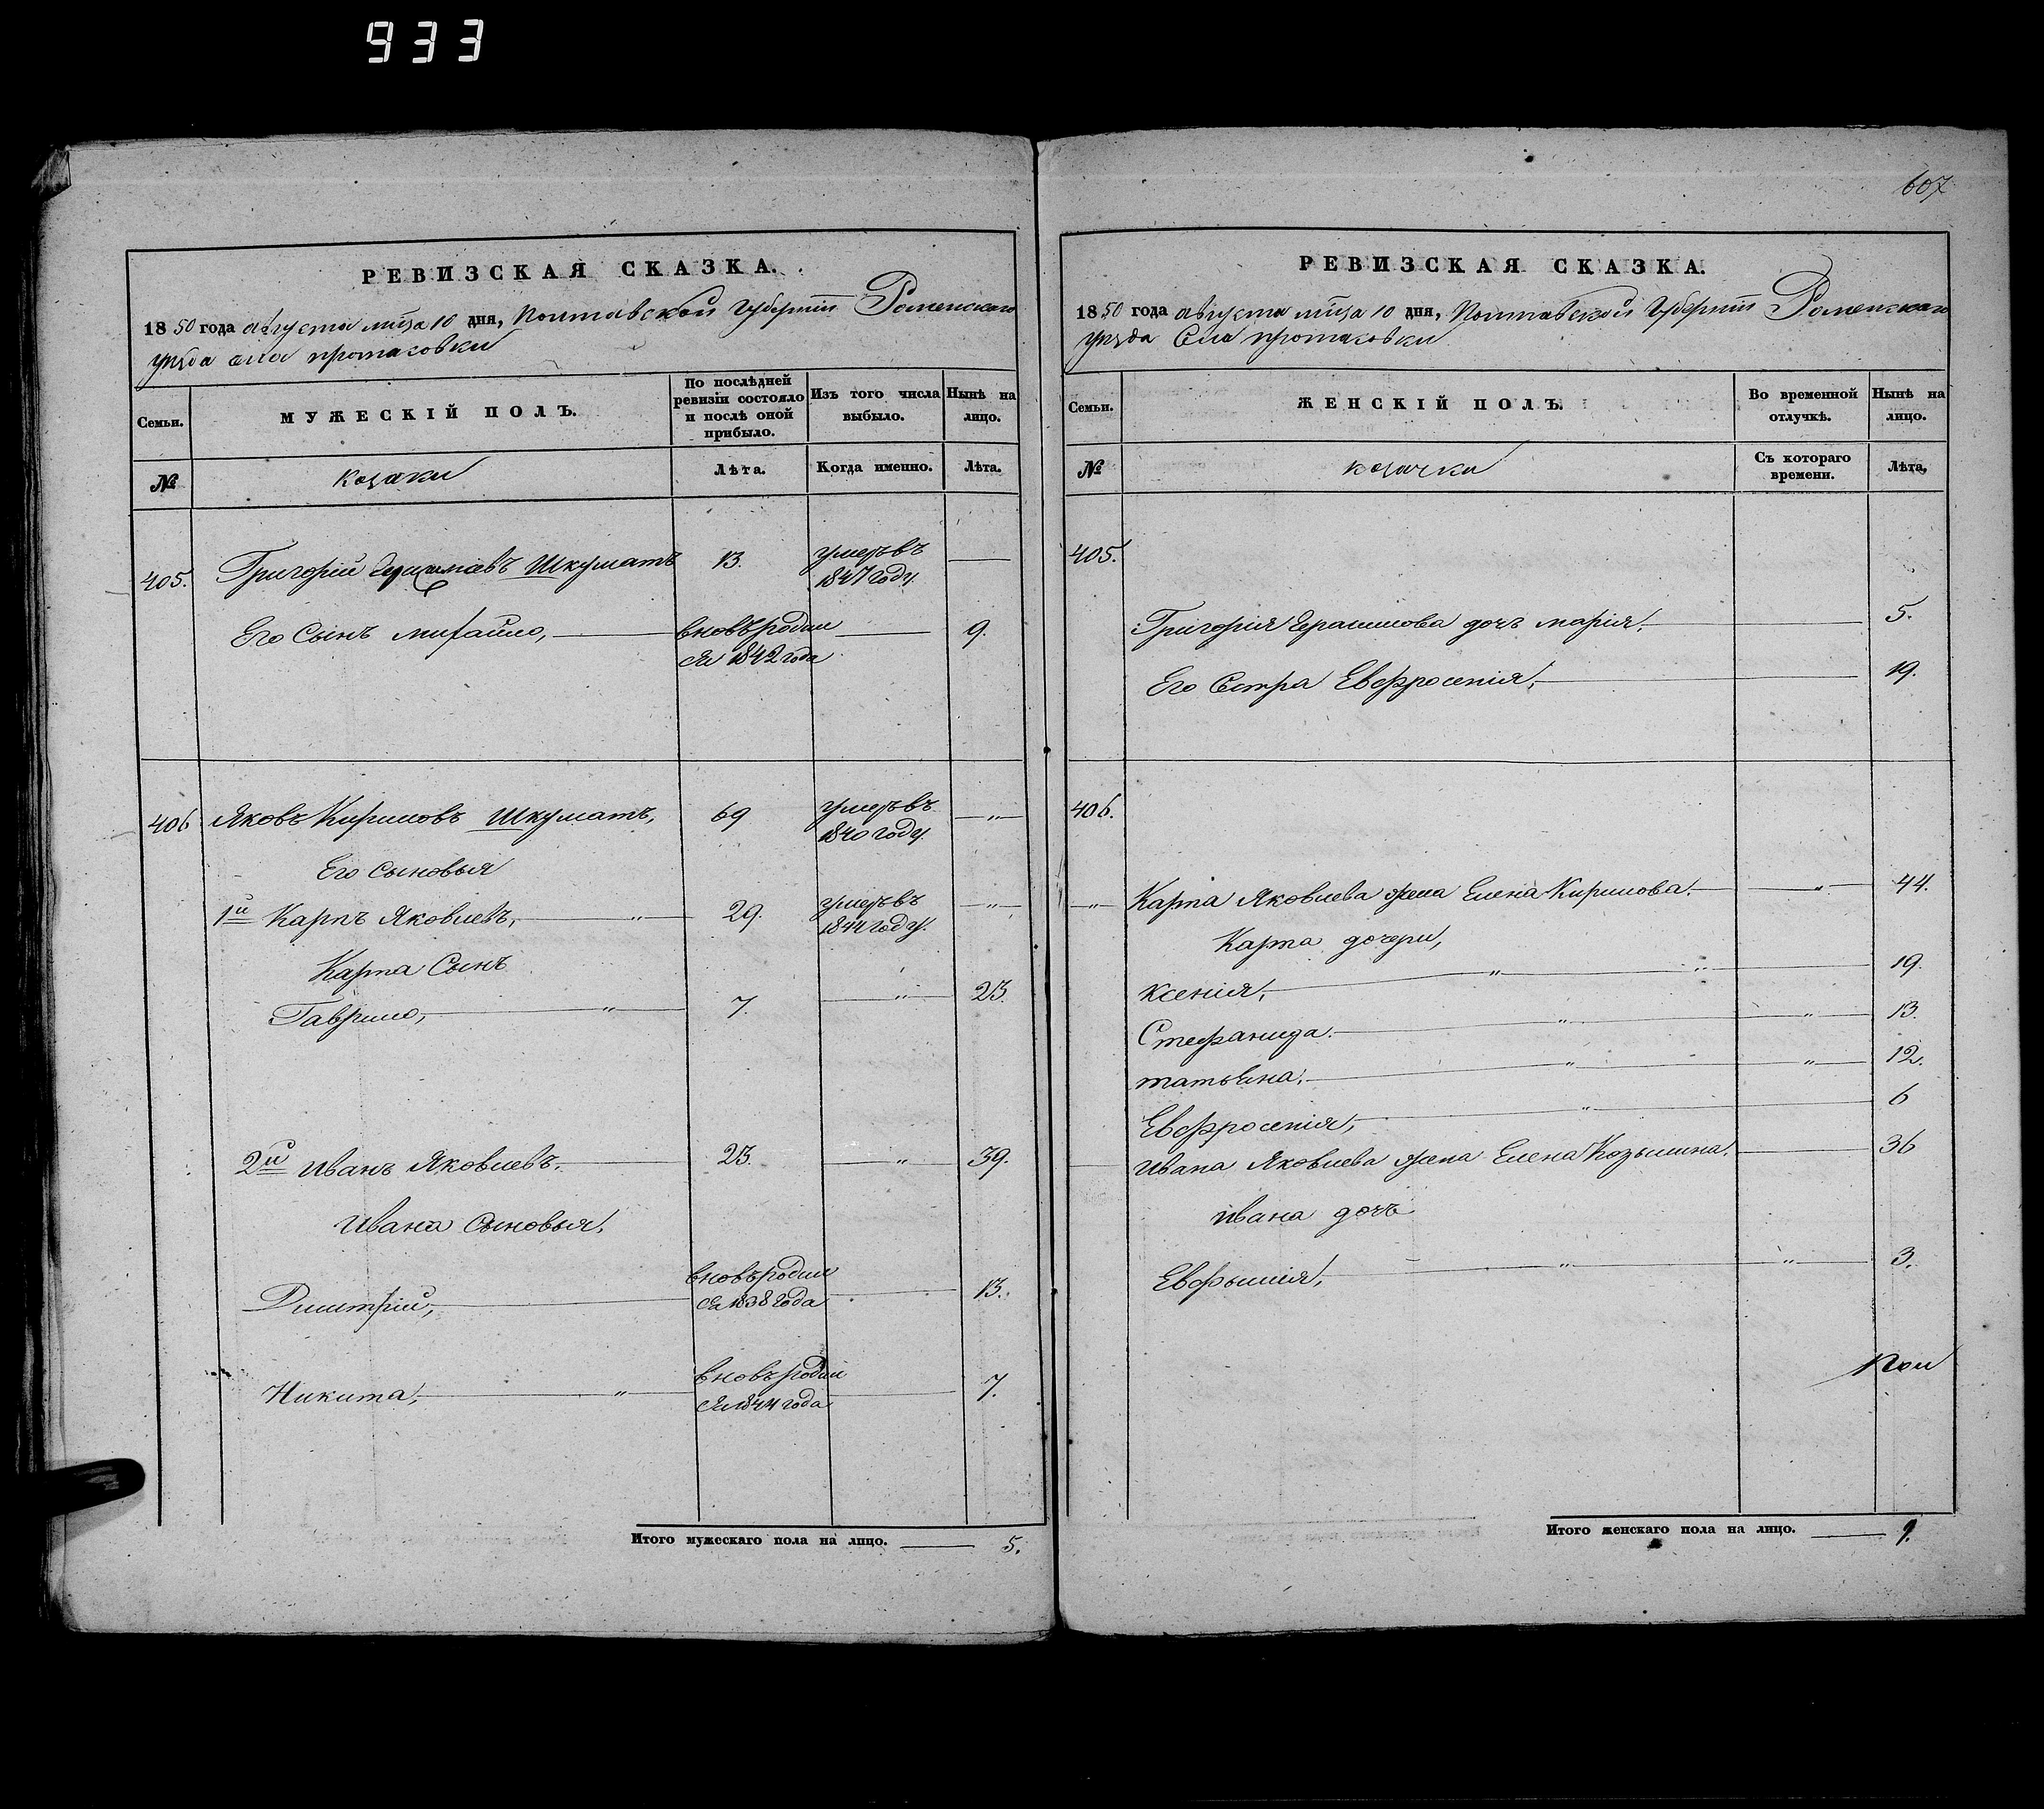 933
РЕВИЗСКАЯ СКАЗКА.
1850 года августа мца 10 дня, Полтавской Губерніи Роменскаго
уѣзда села протасовки
Семьи.
МУЖЕСКІЙ ПОЛЪ.
По послѣдней ревизіи состояло и послѣ оной прибыло.
Изъ того числа выбыло.
Нынѣ на лицо.
№
козаки
Лѣта.
Когда именно.
Лѣта.
405. Григорій Герасимовъ Шкуматъ 13. умеръ въ 1847 году. —
Его Сынъ михайло, вновь родил ся 1842 года — 9.
406 Яковъ Кириловъ Шкуматъ, 69 умеръ въ 1840 году. — " —
Его Сыновья
1й Карпъ Яковлевъ, " 29. умеръ въ 1844 году. — " —
Карпа Сынъ
Гаврило, " 7. — " — 23.
2й иванъ Яковлевъ, 23. — " — 39.
Ивана Сыновья,
Димитрій, вновь родил ся 1838 года — 13.
Никита, " вновь родил ся 1844 года — 7.
Итого мужескаго пола на лицо. 5.
607
РЕВИЗСКАЯ СКАЗКА.
1850 года августа мца 10 дня, Полтавской Губерніи Роменскаго
уѣзда Села протасовки
Семьи.
ЖЕНСКІЙ ПОЛЪ.
Во временной отлучкѣ.
Нынѣ на лицо.
№
козачки
Съ котораго времени.
Лѣта,
405.
Григорія Герасимова дочь марія, 5.
Его Сестра Евфросенія, 19.
406.
— " — Карпа Яковлева жена Елена Кирилова. — " — 44.
Карпа дочери,
Ксенія, " " 19.
Стефанида. " " 13.
татьяна, " " 12.
Евфросенія, " 6
Ивана Яковлева жена Елена Козьмина. 36
ивана дочь
Евфимія, " " 3.
Пол
Итого женскаго пола на лицо. 9.